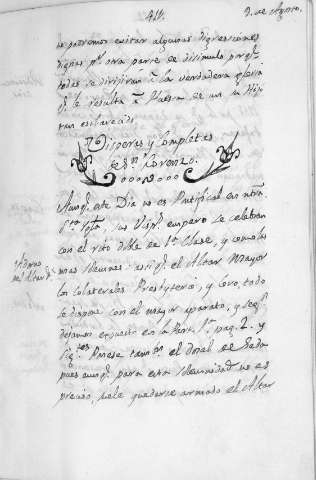 411.
9. de Agosto.
no podremos evitar algunas digressiones
dignas pr. otra parte de disimulo porqe.
todas se dirigiran à la verdadera gloria
qe. le resulta à Nuestra de un su Hijo
tan esclarecido.
Visperas y Completas
de Sn. Lorenzo.
Aunqe. este Dia no es Pontifical en ntra.
Sta. Iglª. sus Visps. empero se celebran
con el rito doble de 1ª. Clase, y como las
mas solemnes: asi qe. el Altar Mayor
los colaterales Presbyterio, y Coro, todo
se dispone con el mayor aparato, y segn.
dejamos expuesto en la Part. 1ª. pag. 2. y
sigtes. Ponese tambn. el dosal de Seda
pues aunqe. para esta solemnidad no es
preciso, suele quedarse armado el Altar
Adorno
del Altar &.